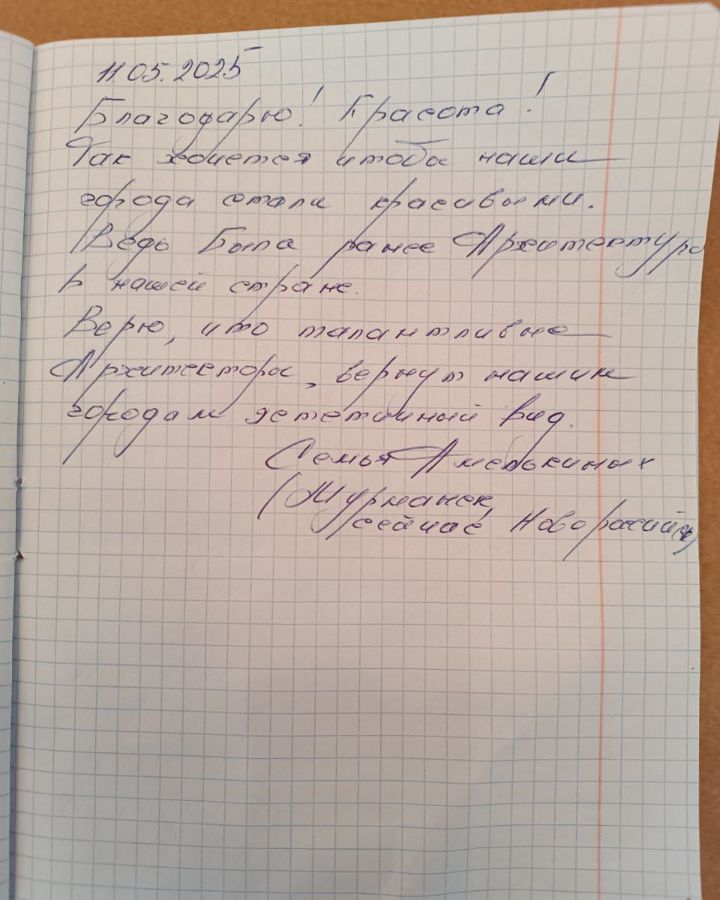 11.05.2025
Благодарю! Красота!
Так хочется чтобы наши
города стали красивыми.
Ведь Была ранее Архитектура
в нашей стране.
Верю, что талантливые
Архитекторы, вернут нашим
городам эстетичный вид.
Семья
(Мурманск,
сейчас Новороссийск)